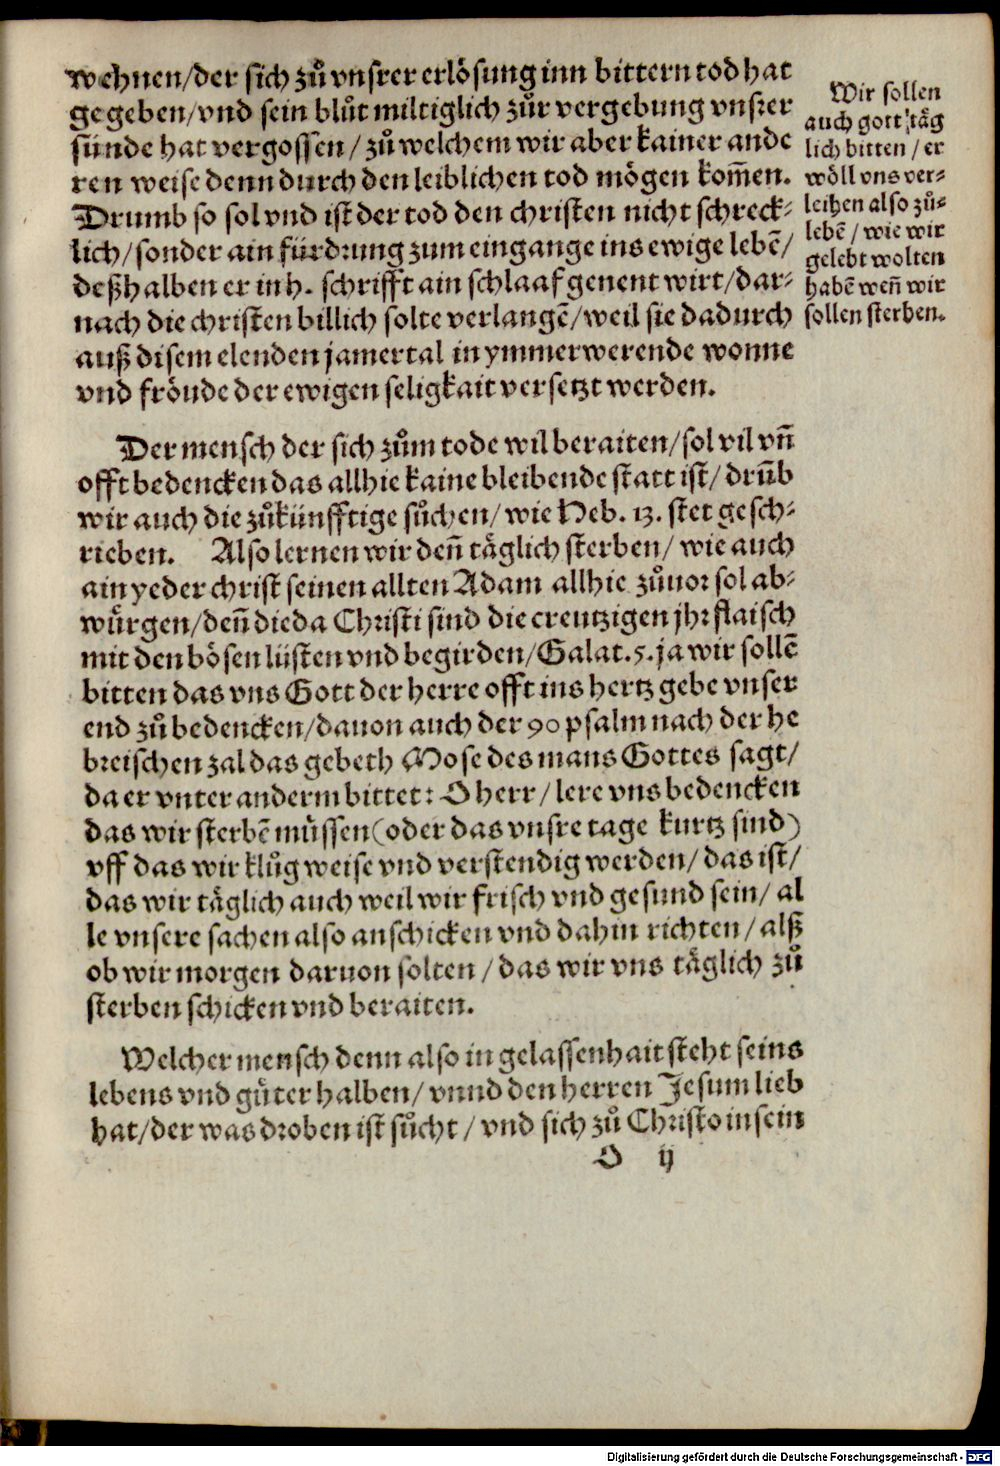 wehnen/der sich zuͦ vnsrer erlösung inn bittern tod hat
gegeben/vnd sein bluͦt miltiglich zuͦr vergebung vnsrer
sünde hat vergossen/zuͦ welchem wir aber kainer ande
ren weise denn durch den leiblichen tod mögen kom̃en.
Drumb so sol vnd ist der tod den christen nicht schreck⸗
lich/sonder ain fürdrung zum eingange ins ewige lebẽ/
deßhalben er in h. schrifft ain schlaaf genent wirt/dar⸗
nach die christen billich solte verlangẽ/weil sie dadurch
auß disem elenden jamertal in ymmerwerende wonne
vnd fröude der ewigen seligkait versetzt werden.
Wir sollen
auch gott täg
lich bitten/er
wöll vns ver⸗
leihen also zuͦ⸗
lebẽ/wie wir
gelebt wolten
habẽ weñ wir
sollen sterben.
Der mensch der sich zuͦm tode wil beraiten/sol vil vñ
offt bedencken das allhie kaine bleibende statt ist/drũb
wir auch die zuͦkünfftige suͦchen/wie Heb. 13. stet gesch⸗
rieben. Also lernen wir deñ täglich sterben/wie auch
ain yeder christ seinen allten Adam allhie zuͦuor sol ab⸗
würgen/deñ die da Christi sind die creutzigen jhr flaisch
mit den bösen lüsten vnd begirden/Galat.5.ja wir sollẽ
bitten das vns Gott der herre offt ins hertz gebe vnser
end zuͦ bedencken/dauon auch der 90 psalm nach der he
breischen zal das gebeth Mose des mans Gottes sagt/
da er vnter anderm bittet: O herr/lere vns bedencken
das wir sterbẽ müssen(oder das vnsre tage kurtz sind)
vff das wir kluͦg weise vnd verstendig werden/das ist/
das wir täglich auch weil wir frisch vnd gesund sein/al
le vnsere sachen also anschicken vnd dahin richten/alß
ob wir morgen daruon solten/das wir vns täglich zuͦ
sterben schicken vnd beraiten.
Welcher mensch denn also in gelassenhait steht seins
lebens vnd güter halben/vnnd den herren Jesum lieb
hat/der was droben ist suͦcht/vnd sich zuͦ Christo in sein
O ij
Digitalisierung gefördert durch die Deutsche Forschungsgemeinschaft - DFG